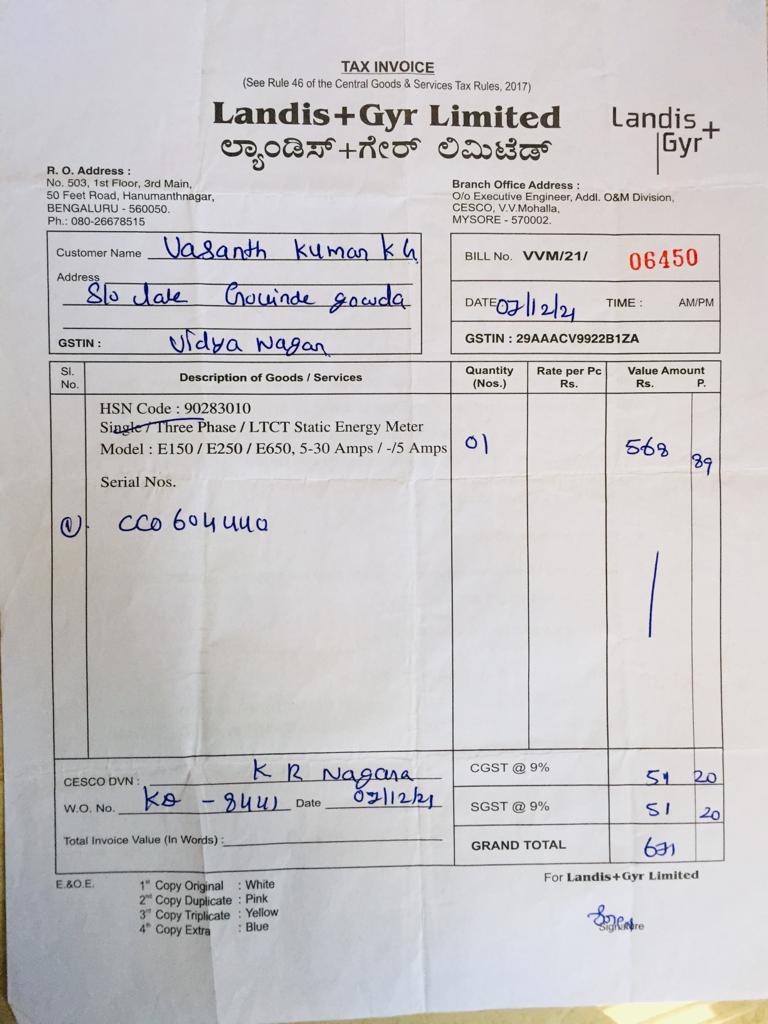 TAX INVOICE
(See Rule 46 of the Central Goods & Services Tax Rules, 2017)
Landis+Gyr Limited
ಲ್ಯಾಂಡಿಸ್+ಗೇರ್ ಲಿಮಿಟೆಡ್
Landis
Gyr+
R. O. Address :
No. 503, 1st Floor, 3rd Main,
50 Feet Road, Hanumanthnagar,
BENGALURU - 560050.
Ph.: 080-26678515
Branch Office Address :
O/o Executive Engineer, Addl. O&M Division,
CESCO, V.V.Mohalla,
MYSORE - 570002.
Customer Name Vasanth Kumar K G
Address
S/o late Govinde gowda
GSTIN : Vidya Nagar
BILL No. VVM/21/ 06450
DATE 07/12/21 TIME : AM/PM
GSTIN : 29AAACV9922B1ZA
Sl. No. Description of Goods / Services Quantity (Nos.) Rate per Pc Rs. Value Amount Rs. P.
HSN Code : 90283010
Single / Three Phase / LTCT Static Energy Meter
Model : E150 / E250 / E650, 5-30 Amps / -/5 Amps 01 568 89
Serial Nos.
1) CC0604440
CESCO DVN : K R Nagara
W.O. No. - 8441 Date 07/12/21
Total Invoice Value (In Words) :
CGST @ 9% 51 20
SGST @ 9% 51 20
GRAND TOTAL 671
E.&O.E.
1st Copy Original : White
2nd Copy Duplicate : Pink
3rd Copy Triplicate : Yellow
4th Copy Extra : Blue
For Landis+Gyr Limited
Signature